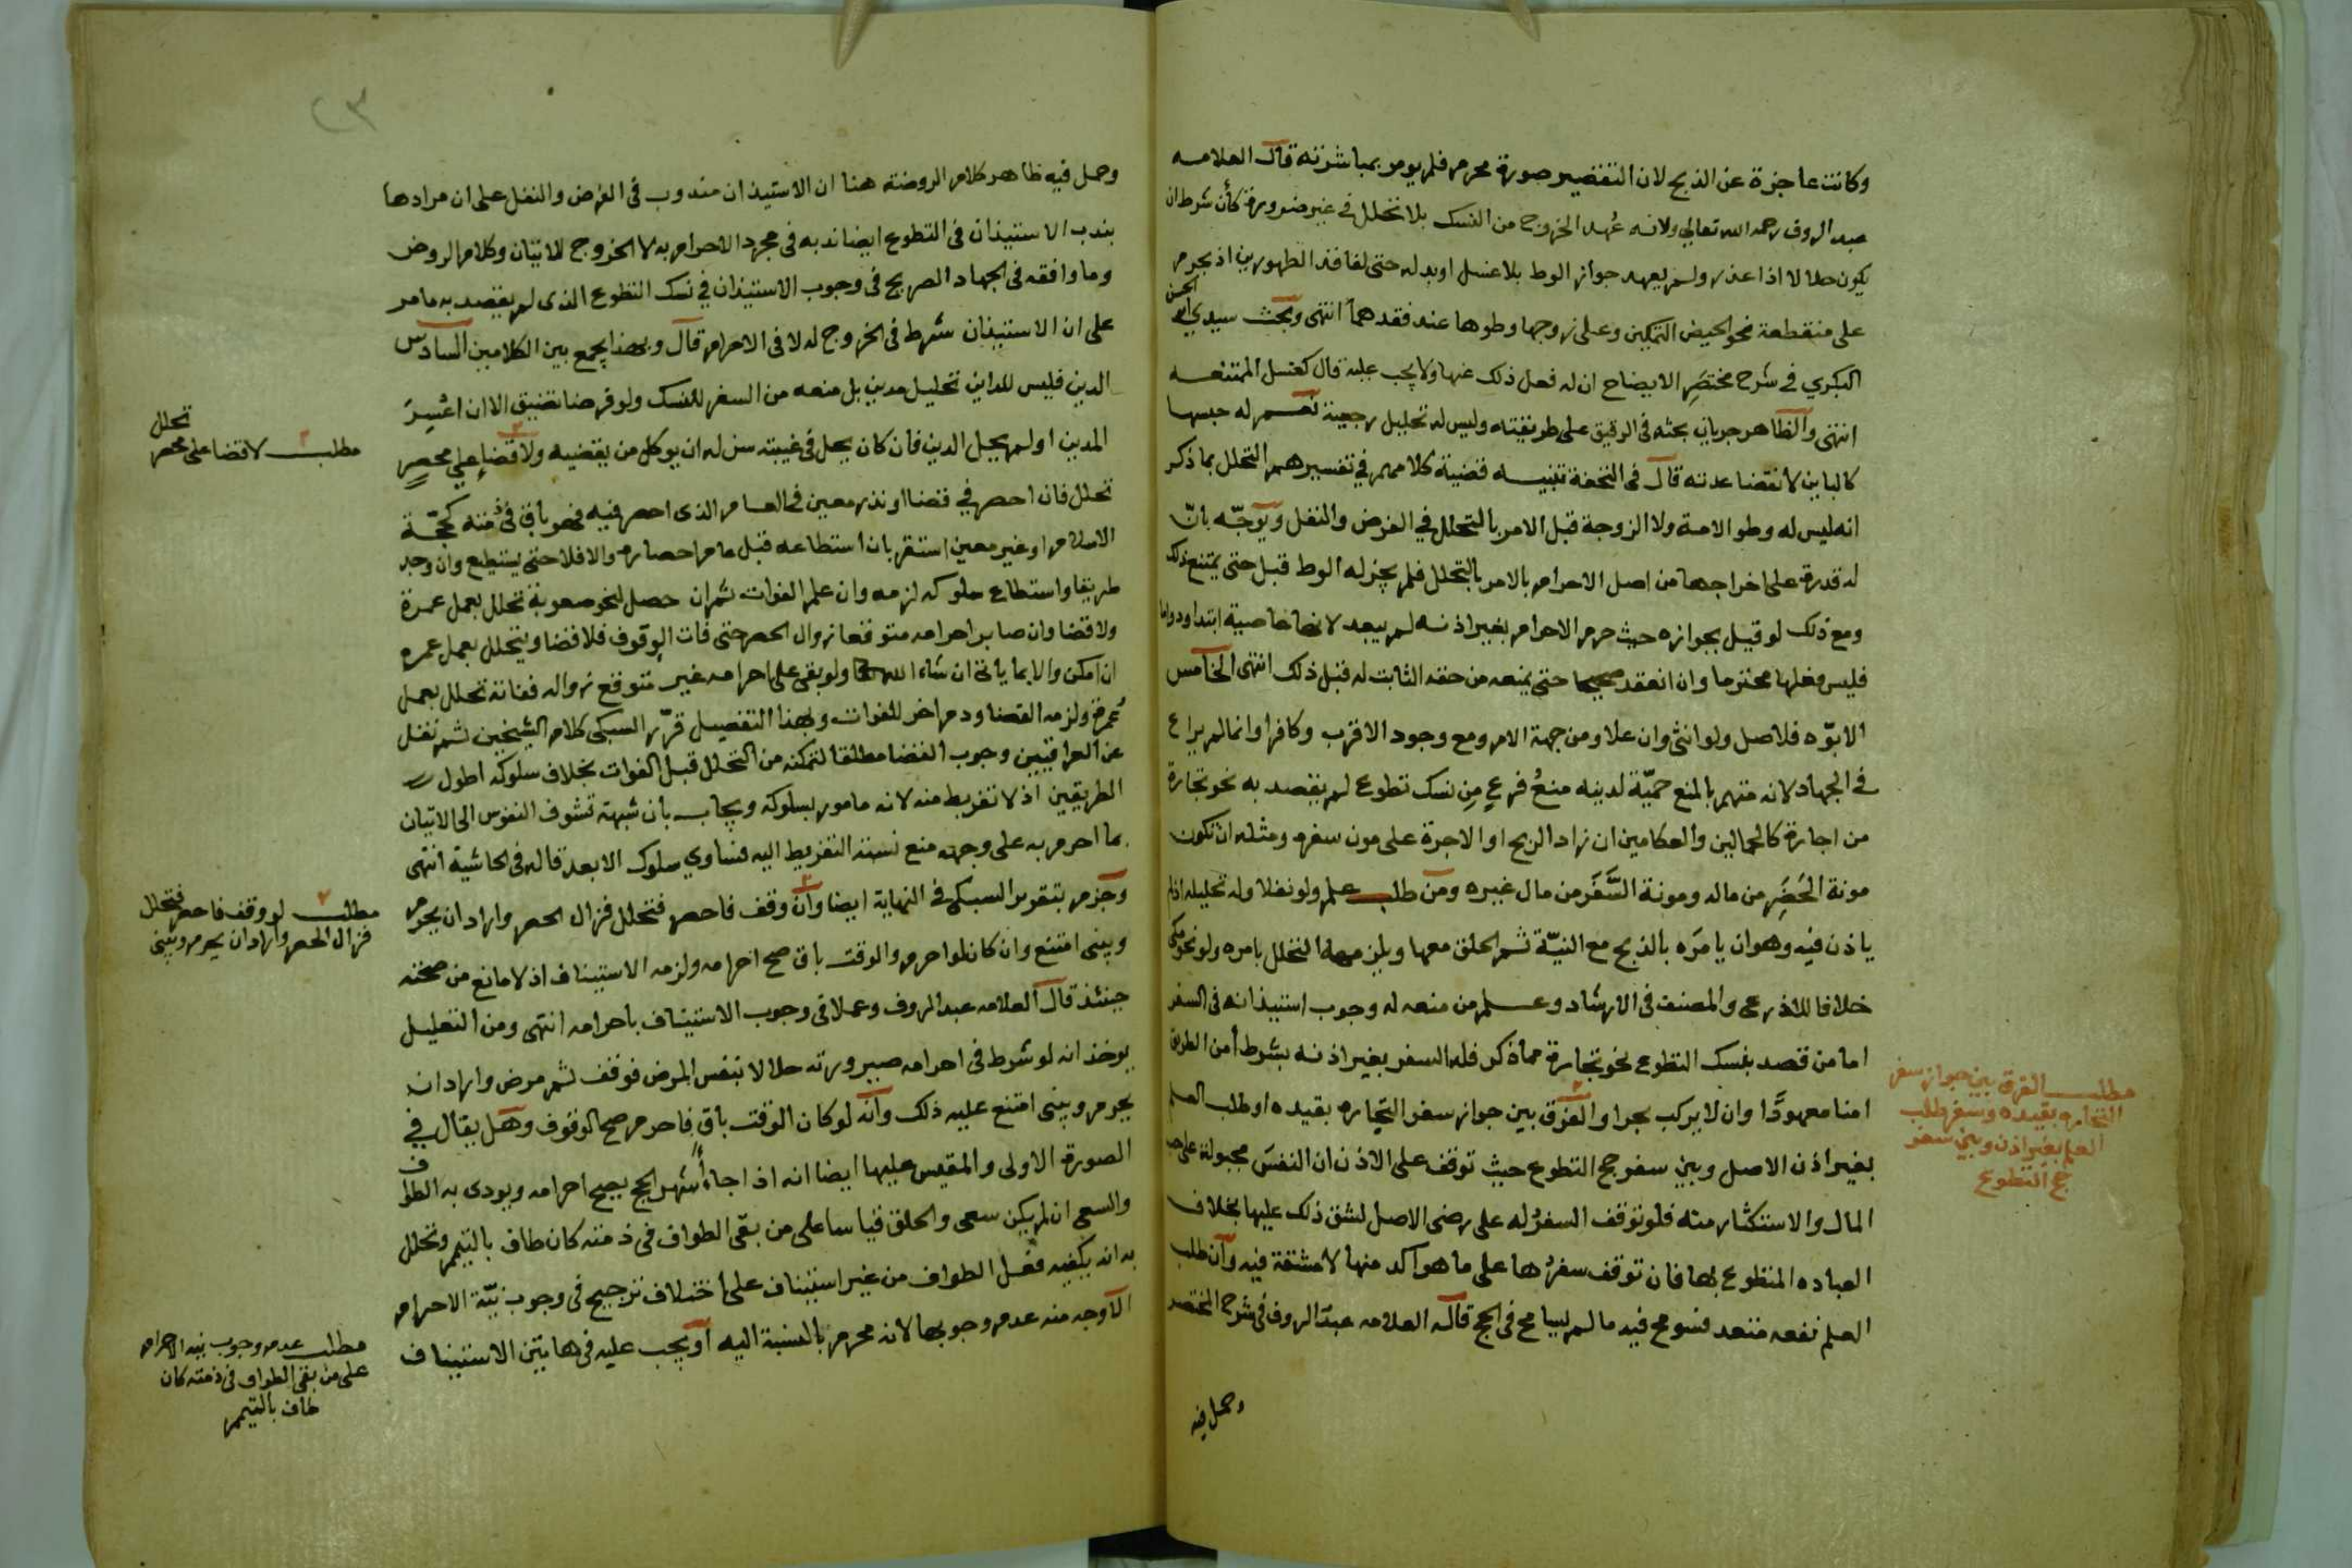 وكانت عاجزة عن الذبح لان التقصير صورة محرم فلم يومر بمباشرته قال العلامه
عبد الروف رحمه الله تعالى ولانه عُهد الخروج من النسك بلا تحلل في غير ضرورة كأن شرط ان
يكون حلالا اذا عذر ولم يعهد جواز الوط بلا غسل او بدله حتى لفاقد الطهورين اذ يحرم
على منقطعة نحو الحيض التمكين وعلى زوجها وطوها عند فقدهما انتهى وبحث سيدي ابو الحسن
البكري في شرح مختصر الايضاح ان له فعل ذلك عنها ولا يجب عليه قال كغسل الممتنعه
انتهى والظاهر جريان بحثه في الرقيق على طريقته وليس له تحليل رجعية نعم له حبسها
كالباين لانقضا عدته قال في التحفة تنبيه قضية كلامهم في تفسيرهم التحلل بما ذكر
انه ليس له وطو الامة ولا الزوجة قبل الامر بالتحلل في الفرض والنفل ويوجّه بانّ
له قدرة على اخراجها من اصل الاحرام بالامر بالتحلل فلم يجز له الوط قبل حتى يمتنع ذلك
ومع ذلك لو قيل بجوازه حيث حرم الاحرام بغير اذنه لم يبعد لانها عاصية ابتدا ودواما
فليس فعلها محترما وان انعقد صحيحا حتى يمنعه من حقه الثابت له قبل ذلك انتهى الخامس
الابوّه فلاصل ولو انثى وان علا ومن جهة الام ومع وجود الاقرب وكافرا وانما لم يراع
في الجهاد لانه متهم بالمنع حميّة لدينه منعُ فرعٍ مِن نسك تطوع لم يقصد به نحو تجارة
من اجارة كالجمالين والعكامين ان زاد الربح او الاجرة على مون سفره ومثله ان تكون
مونة الحَضَرِ من ماله ومونة السَّفَر من مال غيره ومن طلب علم ولو نفلا وله تحليله اذا لم
ياذن فيه وهو ان يامرَه بالذبح مع النيّة ثم الحلق معها ويلزمه التحلل بامره ولو نحو مكي
خلافا للاذرعى والمصنف في الارشاد وعلم من منعه له وجوب استيذانه في السفر
اما من قصد بنسك التطوع نحو تجارة مما ذكر فله السفر بغير اذنه بشرط أمن الطريق
امنا معهودًا وان لا يركب بحرا والفرق بين جواز سفر التجاره بقيده او طلب العلم
بغير اذن الاصل وبين سفر حج التطوع حيث توقف على الاذن ان النفسَ مجبولة على حب
المال والاستكثار منه فلو توقف السفرُ له على رضى الاصل لشق ذلك عليها بخلاف
العباده المتطوع بها فان توقف سفرُها على ما هو اكد منها لا مشقة فيه وان طلب
العلم نفعه متعد فسومح فيه ما لم يسامح في الحج قاله العلامه عبد الروف في شرح المختصر
وحمل فيه
مطلب الفرق بين جواز سفر
التجاره بقيده وسفر طلب
العلم بغير اذن وبين سفر
حج التطوع
٢٣
وحمل فيه ظاهر كلام الروضة هنا ان الاستيذان مندوب في الفرض والنفل على ان مرادها
بندب الاستيذان في التطوع ايضا ندبه في مجرد الاحرام به لا الخروج للاتيان وكلام الروض
وما وافقه في الجهاد الصريح في وجوب الاستيذان في نسك التطوع الذى لم يقصد به ما مر
على ان الاستيذان شرط في الخروج له لا في الاحرام قال وبهذا يجمع بين الكلامين السادس
الدين فليس للداين تحليل مدين بل منعه من السفر للنسك ولو فرضا تضيق الا ان اعسِرَ
المدين او لم يحل الدين فان كان يحل في غيبته سن له ان يوكل من يقضيه ولا قضاء على محصرٍ
تحلل فان احصر في قضا او نذر معين في العام الذى احصر فيه فهو باق في ذمته كحجّة
الاسلام او غير معين استقر بان استطاعه قبل عام احصاره والا فلا حتى يستطيع وان وجد
طريقا واستطاع سلوكه لزمه وان علم الفوات ثم ان حصل لنحو صعوبة تحلل بعمل عمرة
ولا قضا وان صابر احرامه متوقعا زوال الحصر حتى فات الوقوف فلا قضا ويتحلل بعمل عمره
ان امكن والا بما ياتى ان شاء الله ولو بقى على احرامه غير متوقع زواله ففاته تحلل بعمل
عُمرةٍ ولزمه القضا ودم اخر للفوات وبهذا التفصيل قرّر السبكى كلام الشيخين ثم نقل
عن العراقيين وجوب القضا مطلقا لتمكنه من التحلل قبل الفوات بخلاف سلوكه اطول
الطريقين اذ لا تفريط منه لانه مامور بسلوكه ويجاب بان شبهة تشوف النفوس الى الاتيان
بما احرم به على وجهه منع نسبة التفريط اليه فساوي سلوك الابعد قاله في الحاشية انتهى
وجزم بتقرير السبكى في النهاية ايضا وان وقف فاحصر فتحلل فزال الحصر واراد ان يحرم
ويبنى امتنع وان كان لو احرم والوقت باق صح احرامه ولزمه الاستيناف اذ لا مانع من صحته
حينئذ قال العلامه عبد الروف وعملا في وجوب الاستيناف باحرامه انتهى ومن التعليل
يوخذ انه لو شرط في احرامه صيرورته حلالا بنفس المرض فوقف ثم مرض واراد ان
يحرم ويبنى امتنع عليه ذلك وانه لو كان الوقت باق فاحرم صح الوقوف وهل يقال في
الصورة الاولى والمقيس عليها ايضا انه اذا جاء أشهر الحج يصح احرامه ويودى به الطواف
والسعى ان لم يكن سعى والحلق قياسا على من بقى الطواف في ذمته كان طاف بالتيمم وتحلل
به انه يكفيه فعل الطواف من غير استيناف على اختلاف ترجيح في وجوب نيّة الاحرام
الاوجه منه عدم وجوبها لانه محرم بالنسبة اليه او يجب عليه في هاتين الاستيناف
مطلب لا قضا على محصر تحلل
مطلب لو وقف فاحصر فتحلل
فزال الحصر واراد ان يحرم ويبنى
مطلب عدم وجوب نية الاحرام
على من بقى الطواف في ذمته كان
طاف بالتيمم